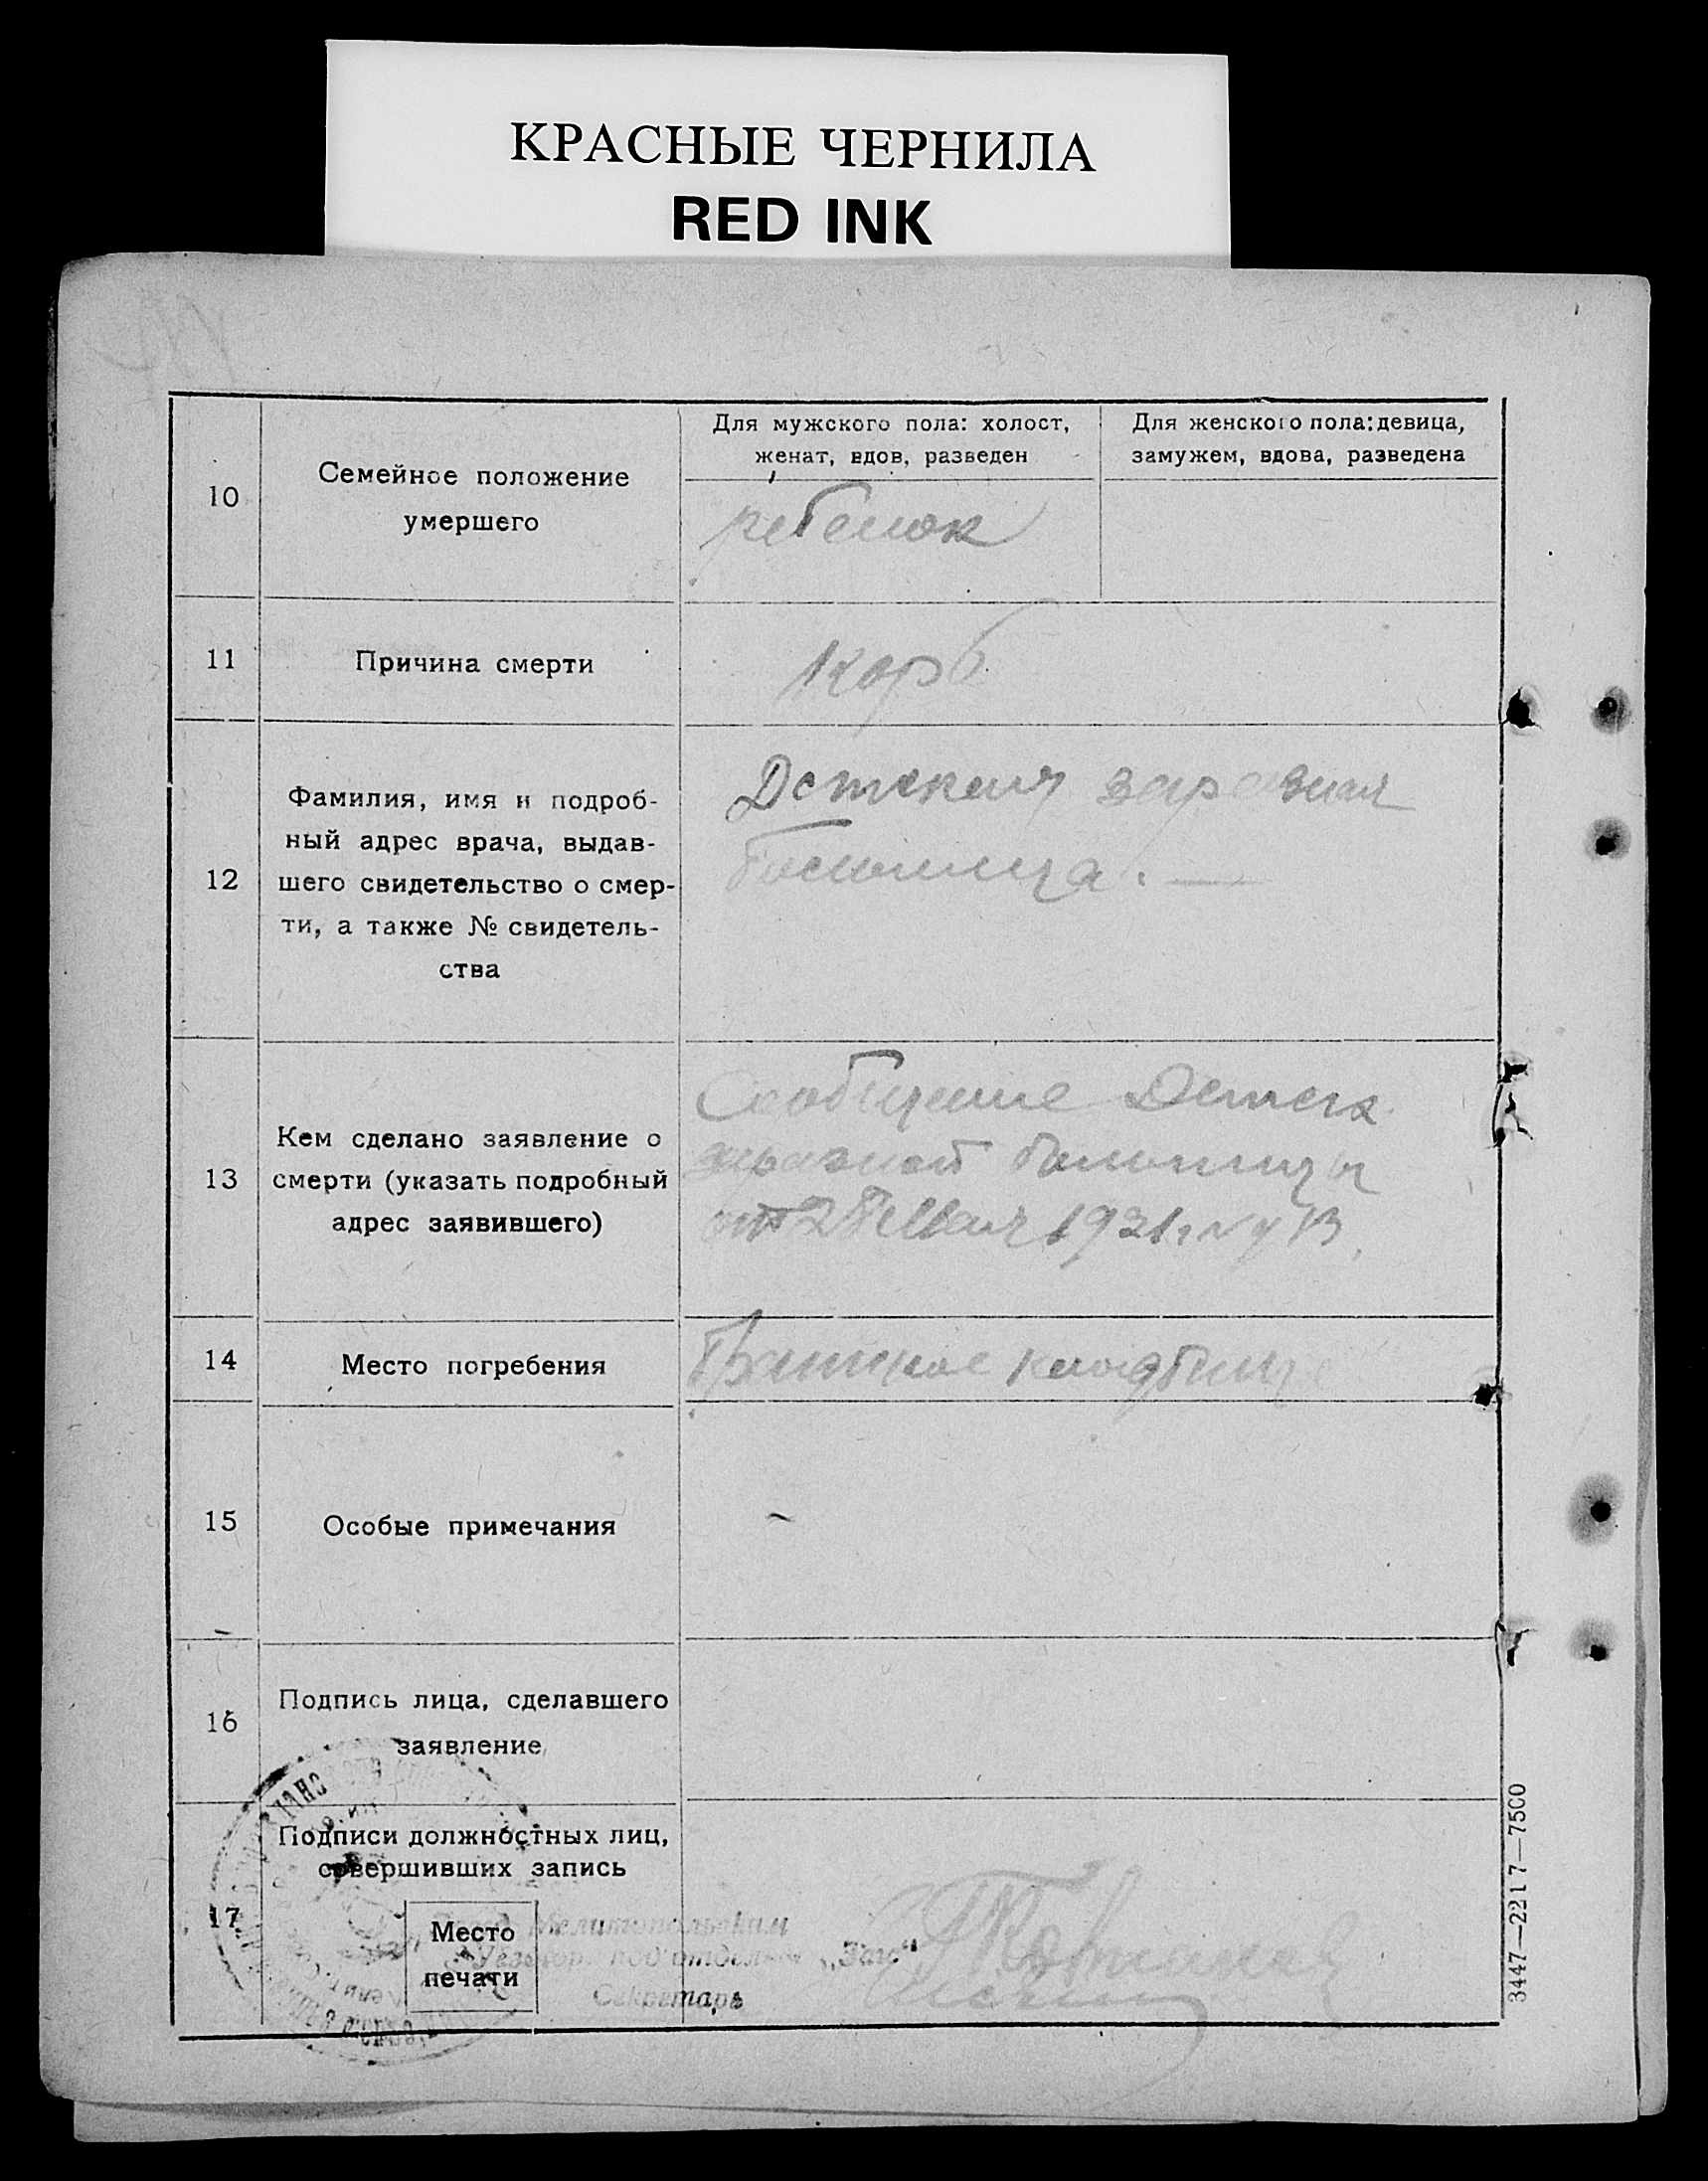 КРАСНЫЕ ЧЕРНИЛА
RED INK
10
Семейное положение
умершего
Для мужского пола: холост,
женат, вдов, разведен
Для женского пола: девица,
замужем, вдова, разведена
ребенок
11
Причина смерти
корь
12
Фамилия, имя и подроб-
ный адрес врача, выдав-
шего свидетельство о смер-
ти, а также № свидетель-
ства
Детская заразная
больница. —
13
Кем сделано заявление о
смерти (указать подробный
адрес заявившего)
Сообщение Детск.
заразной больницы
от Мая 1921г №
14
Место погребения
кладбище
15
Особые примечания
16
Подпись лица, сделавшего
заявление
17
Подписи должностных лиц,
совершивших запись
Место
печати
Мелитопольским
под'отделом „Загс“
Секретарь
3447—2217—7500